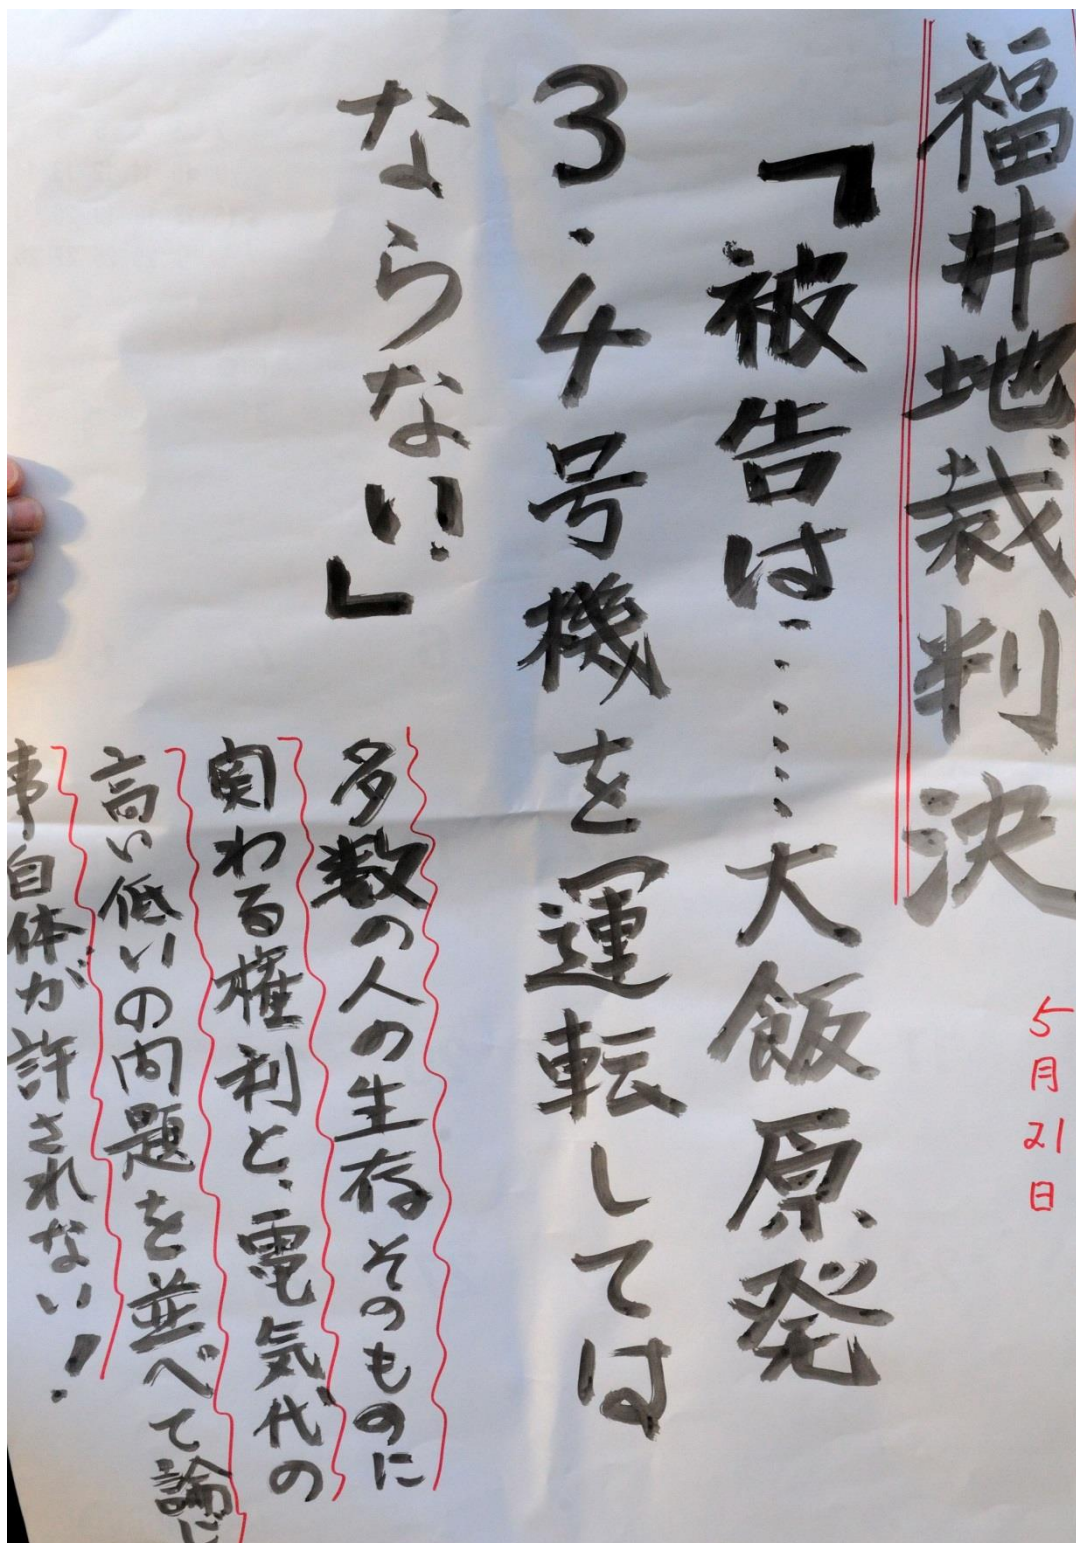 福井地裁判決
5月21日
「被告は……大飯原発
3・4号機を運転しては
ならない」
多数の人の生存そのものに
関わる権利と、電気代の
高い低いの問題を並べて論じ
事自体が許されない！